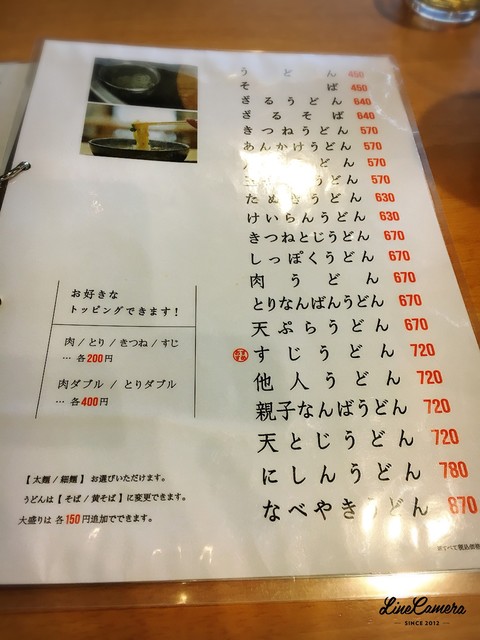 うどん 450
そば 450
ざるうどん 640
ざるそば 640
きつねうどん 570
あんかけうどん 570
どん 570
うどん 570
たぬきうどん 630
けいらんうどん 630
きつねとじうどん 670
しっぽくうどん 670
肉うどん 670
とりなんばんうどん 670
天ぷらうどん 670
すじうどん 720
他人うどん 720
親子なんばうどん 720
天とじうどん 720
にしんうどん 780
なべやきうどん 870
お好きな
トッピングできます！
肉 / とり / きつね / すじ
… 各200円
肉ダブル / とりダブル
… 各400円
【太麺 / 細麺】お選びいただけます。
うどんは【そば / 黄そば】に変更できます。
大盛りは 各150円追加でできます。
LineCamera
SINCE 2012